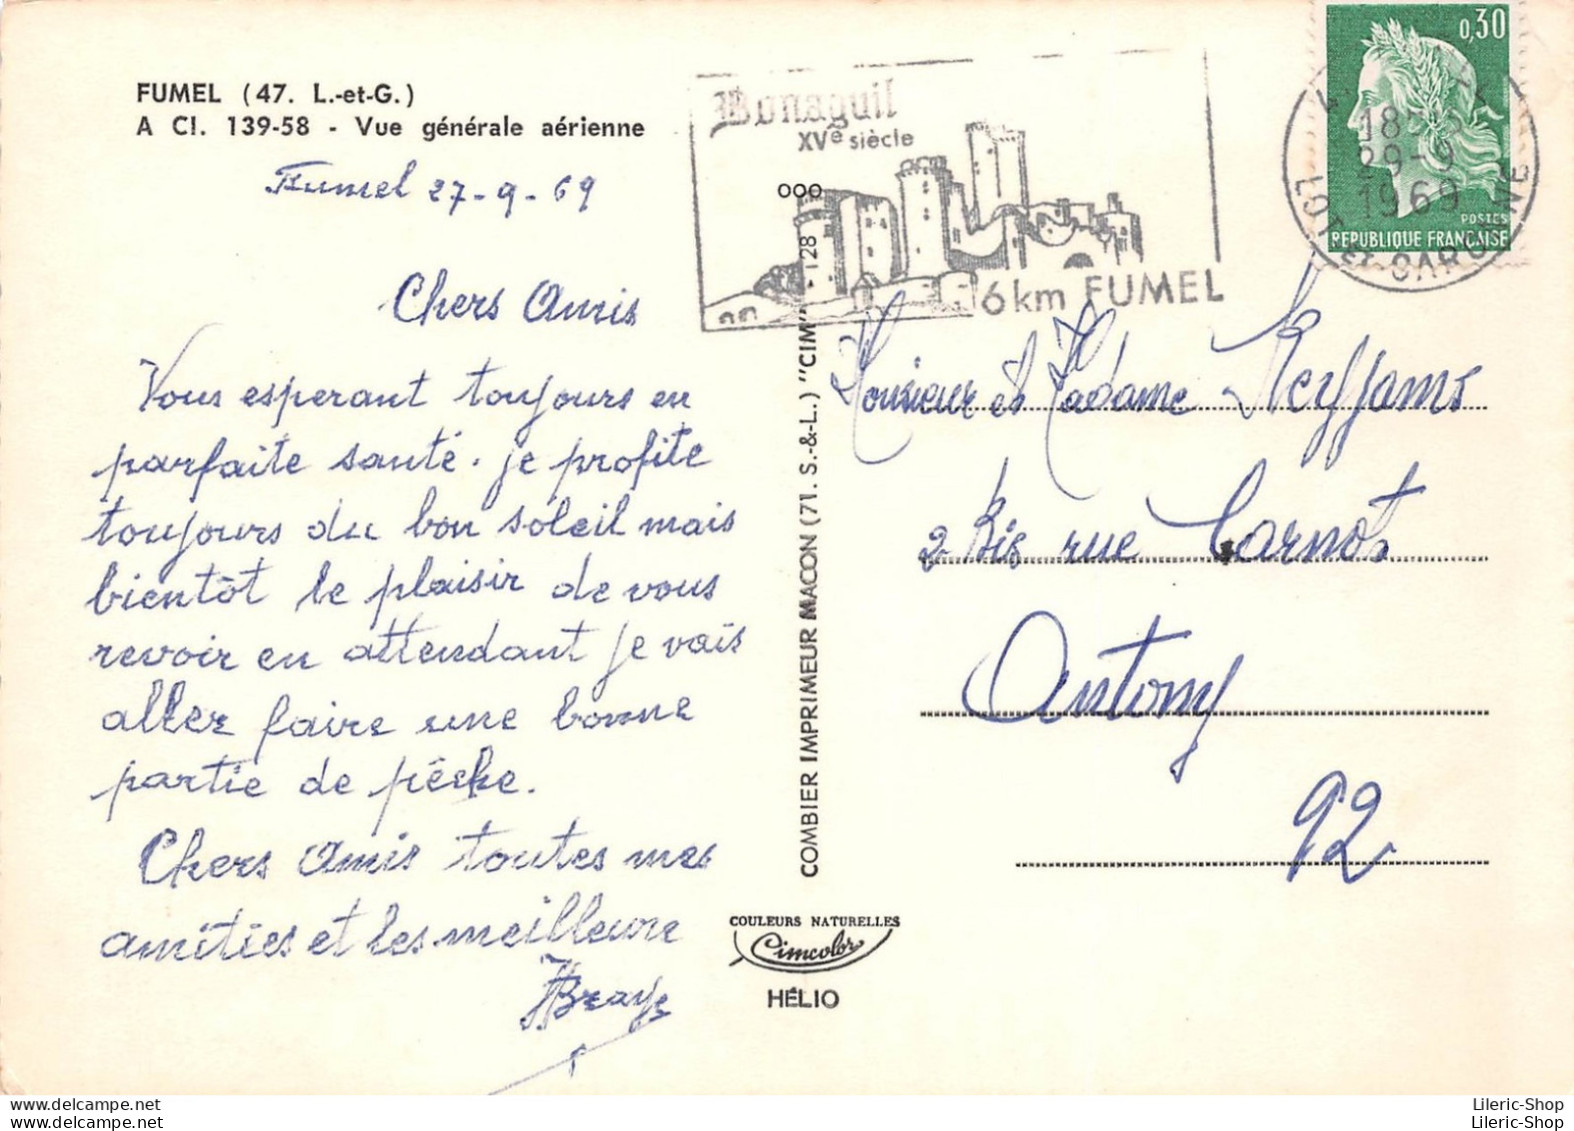 FUMEL (47. L.-et-G.)
A CI. 139-58 - Vue générale aérienne
Fumel 27-9-69
Chers Amis
Vous esperant toujours en
parfaite santé. je profite
toujours du bon soleil mais
bientôt le plaisir de vous
revoir en attendant je vais
aller faire une bonne
partie de pêche.
Chers Amis toutes mes
amities et les meilleure
Bonaguil
XVe siècle
6 km FUMEL
0,30
POSTES
REPUBLIQUE FRANÇAISE
18
29-9
1969
LOT ET GARONNE
COMBIER IMPRIMEUR MACON (71. S.-&-L.) "CIM" - 128
000
Monsieur et Madame
2 Bis rue Carnot
Antony
92
COULEURS NATURELLES
Cimcolor
HÉLIO
Lileric-Shop
Lileric-Shop
Lileric-Shop
Lileric-Shop